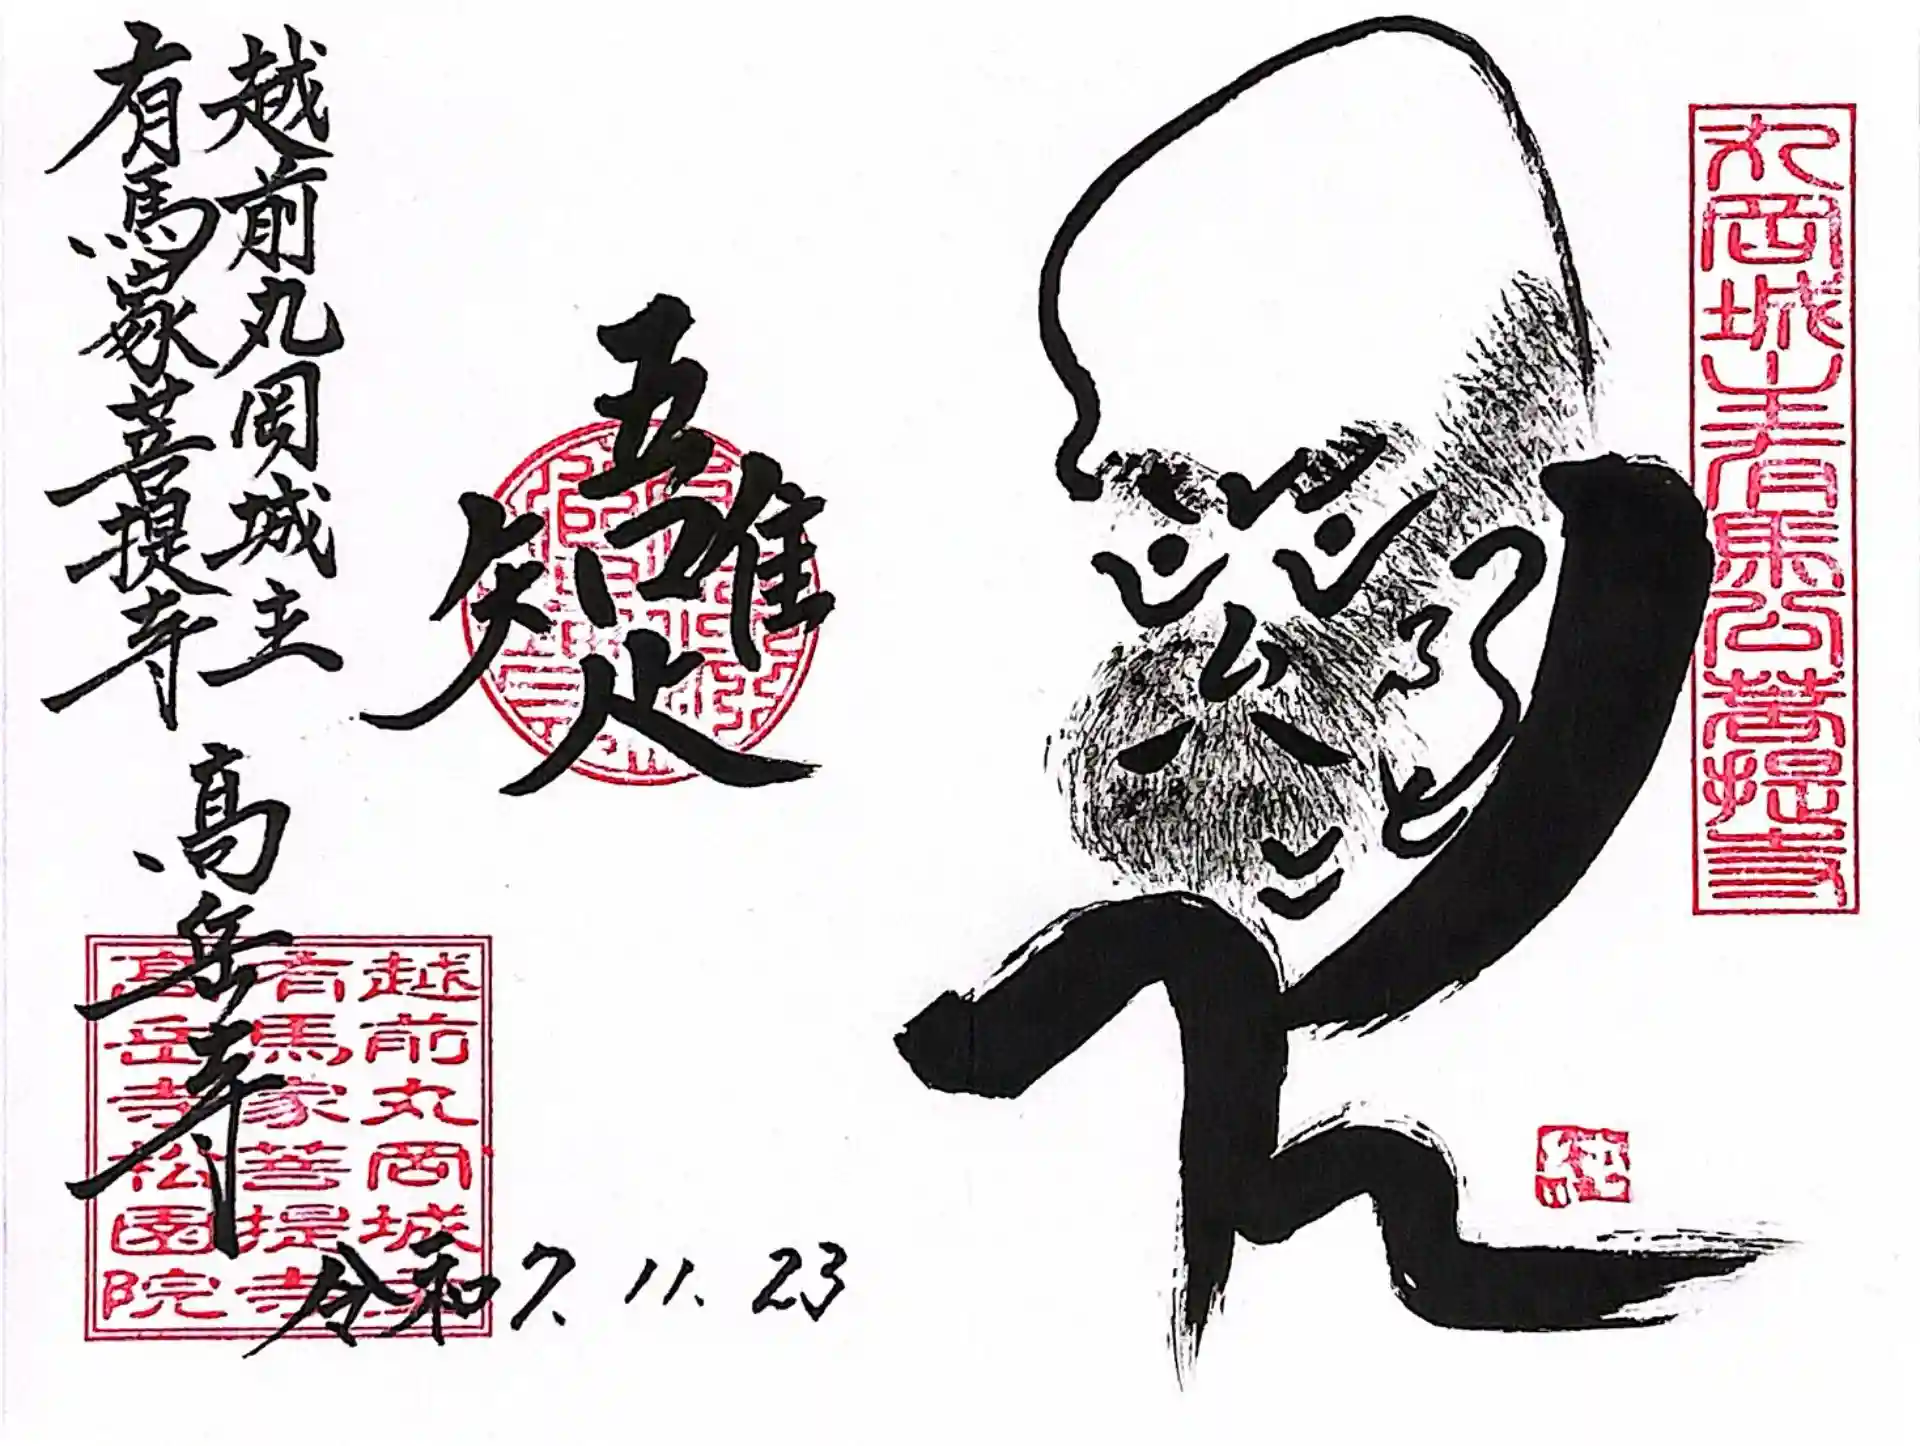 丸岡城主有馬公菩提寺
吾唯足知
越前丸岡城主
有馬家菩提寺
高岳寺
越前丸岡城主
有馬家菩提寺
高岳寺松園院
令和7.11.23